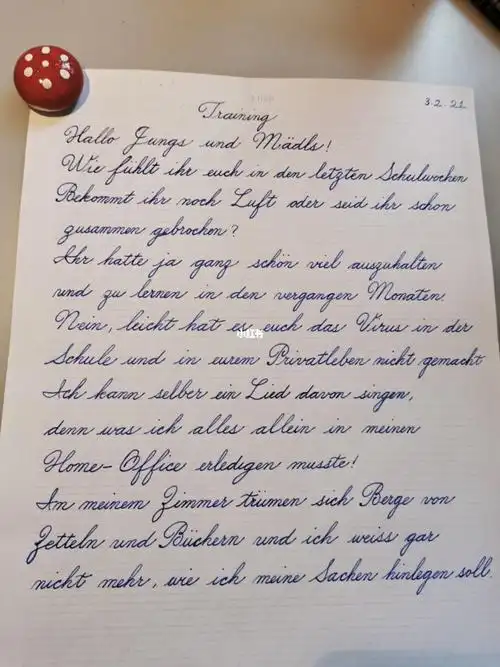 3.2.21
Training
Hallo Jungs und Mädls!
Wie fühlt ihr euch in den letzten Schulwochen
Bekommt ihr noch Luft oder seid ihr schon
zusammen gebrochen?
Ihr hatte ja ganz schön viel auszuhalten
und zu lernen in den vergangen Monaten.
Nein, leicht hat es euch das Virus in der
小红书
Schule und in eurem Privatleben nicht gemacht
Ich kann selber ein Lied davon singen,
denn was ich alles allein in meinen
Home-Office erledigen musste!
In meinem Zimmer trümen sich Berge von
Zetteln und Büchern und ich weiss gar
nicht mehr, wie ich meine Sachen hinlegen soll.